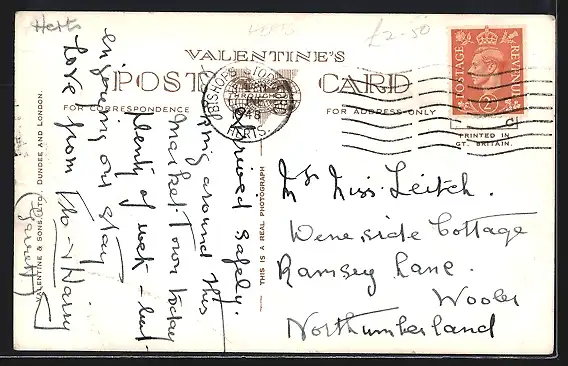 Herts
HERTS
£2-50
VALENTINE'S
POST CARD
FOR CORRESPONDENCE
FOR ADDRESS ONLY
POSTAGE
REVENUE
2
D
PRINTED IN
GT. BRITAIN.
BISHOP'S STORTFORD
1948
HERTS.
VALENTINE & SONS, LTD. DUNDEE AND LONDON.
THIS IS A REAL PHOTOGRAPH
Arrived safely.
around this
market Town today
plenty of wet – but
enjoying our stay
Love from Flo & Harry
Miss Leitch.
side Cottage
Ramsey Lane.
Wooler
Northumberland